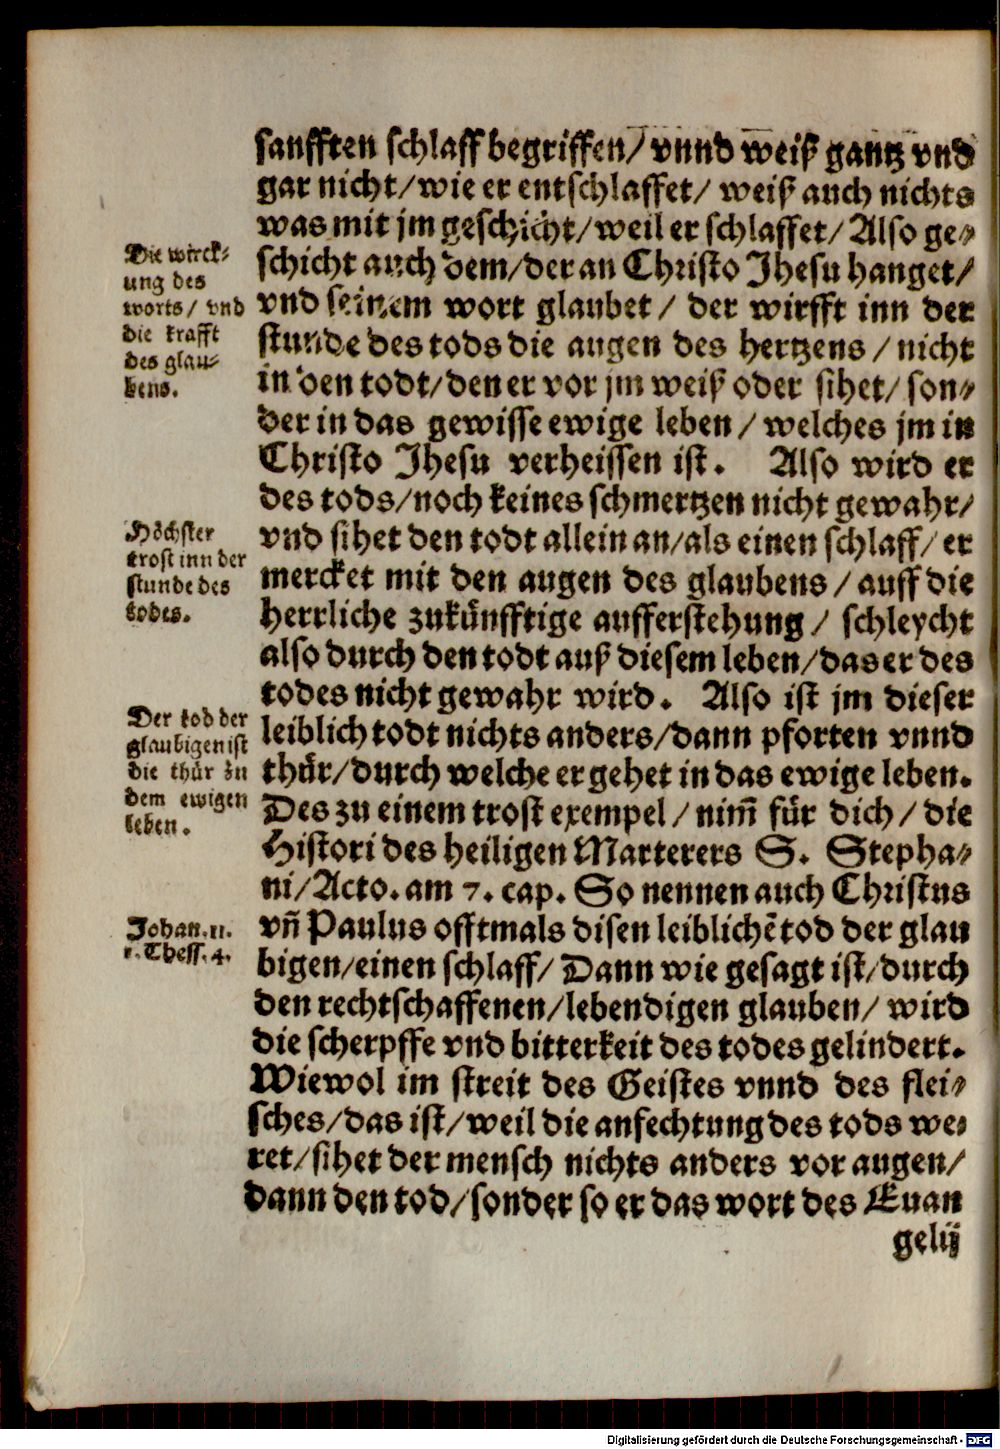 sanfften schlaff begriffen/ vnnd weiß gantz vnd
gar nicht/wie er entschlaffet/ weiß auch nichts
was mit jm geschicht/weil er schlaffet/ Also ge⸗
schicht auch dem/der an Christo Jhesu hanget/
vnd seinem wort glaubet/ der wirfft inn der
stunde des tods die augen des hertzens/ nicht
in den todt/den er vor jm weiß oder sihet/ son⸗
der in das gewisse ewige leben/ welches jm in
Christo Jhesu verheissen ist. Also wird er
des tods/noch keines schmertzen nicht gewahr/
vnd sihet den todt allein an/als einen schlaff/ er
mercket mit den augen des glaubens/ auff die
herrliche zukünfftige aufferstehung/ schleycht
also durch den todt auß diesem leben/das er des
todes nicht gewahr wird. Also ist jm dieser
leiblich todt nichts anders/dann pforten vnnd
thür/durch welche er gehet in das ewige leben.
Des zu einem trost exempel/ nim̃ für dich/ die
Histori des heiligen Marterers S. Stepha⸗
ni/Acto. am 7. cap. So nennen auch Christus
vñ Paulus offtmals disen leiblichẽ tod der glau
bigen/einen schlaff/ Dann wie gesagt ist/durch
den rechtschaffenen/lebendigen glauben/ wird
die scherpffe vnd bitterkeit des todes gelindert.
Wiewol im streit des Geistes vnnd des flei⸗
sches/das ist/weil die anfechtung des tods we⸗
ret/sihet der mensch nichts anders vor augen/
dann den tod/sonder so er das wort des Euan
gelij
Die wirck⸗
ung des
worts/ vnd
die krafft
des glau⸗
bens.
Höchster
trost inn der
stunde des
todes.
Der tod der
glaubigen ist
die thür zu
dem ewigen
leben.
Johan. 11.
1. Thess. 4.
Digitalisierung gefördert durch die Deutsche Forschungsgemeinschaft - DFG